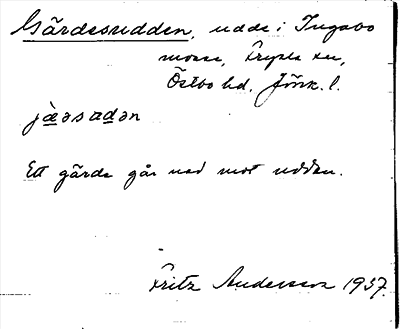 Gärdesudden, udde i Ingabo
mosse, Fryele sn,
Östbo hd, Jönk. l.
jæ̀əsadən
Ett gärde går ned mot udden.
Fritz Andersson 1937.